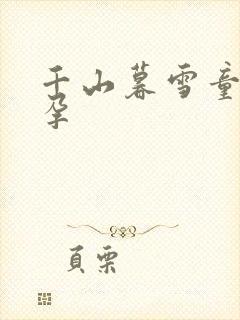 千山暮雪童
孕
頁栗